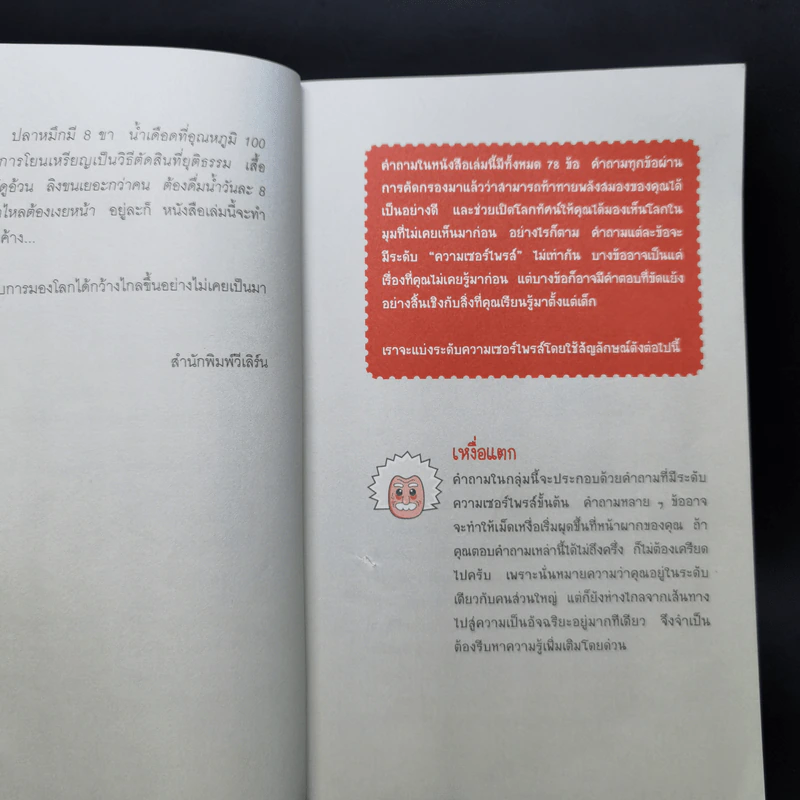 ปลาหมึกมี 8 ขา น้ำเดือดที่อุณหภูมิ 100
การโยนเหรียญเป็นวิธีตัดสินที่ยุติธรรม เสื้อ
ดูอ้วน ลิงขนเยอะกว่าคน ต้องดื่มน้ำวันละ 8
ไหลต้องเงยหน้า อยู่ละก็ หนังสือเล่มนี้จะทำ
ค้าง...
การมองโลกได้กว้างไกลขึ้นอย่างไม่เคยเป็นมา
สำนักพิมพ์วีเลิร์น
คำถามในหนังสือเล่มนี้มีทั้งหมด 78 ข้อ คำถามทุกข้อผ่าน
การคัดกรองมาแล้วว่าสามารถท้าทายพลังสมองของคุณได้
เป็นอย่างดี และช่วยเปิดโลกทัศน์ให้คุณได้มองเห็นโลกใน
มุมที่ไม่เคยเห็นมาก่อน อย่างไรก็ตาม คำถามแต่ละข้อจะ
มีระดับ "ความเซอร์ไพรส์" ไม่เท่ากัน บางข้ออาจเป็นแค่
เรื่องที่คุณไม่เคยรู้มาก่อน แต่บางข้อก็อาจมีคำตอบที่ขัดแย้ง
อย่างสิ้นเชิงกับสิ่งที่คุณเรียนรู้มาตั้งแต่เด็ก
เราจะแบ่งระดับความเซอร์ไพรส์โดยใช้สัญลักษณ์ดังต่อไปนี้
เหงื่อแตก
คำถามในกลุ่มนี้จะประกอบด้วยคำถามที่มีระดับ
ความเซอร์ไพรส์ขั้นต้น คำถามหลาย ๆ ข้ออาจ
จะทำให้เม็ดเหงื่อเริ่มผุดขึ้นที่หน้าผากของคุณ ถ้า
คุณตอบคำถามเหล่านี้ได้ไม่ถึงครึ่ง ก็ไม่ต้องเครียด
ไปครับ เพราะนั่นหมายความว่าคุณอยู่ในระดับ
เดียวกับคนส่วนใหญ่ แต่ก็ยังห่างไกลจากเส้นทาง
ไปสู่ความเป็นอัจฉริยะอยู่มากทีเดียว จึงจำเป็น
ต้องรีบหาความรู้เพิ่มเติมโดยด่วน